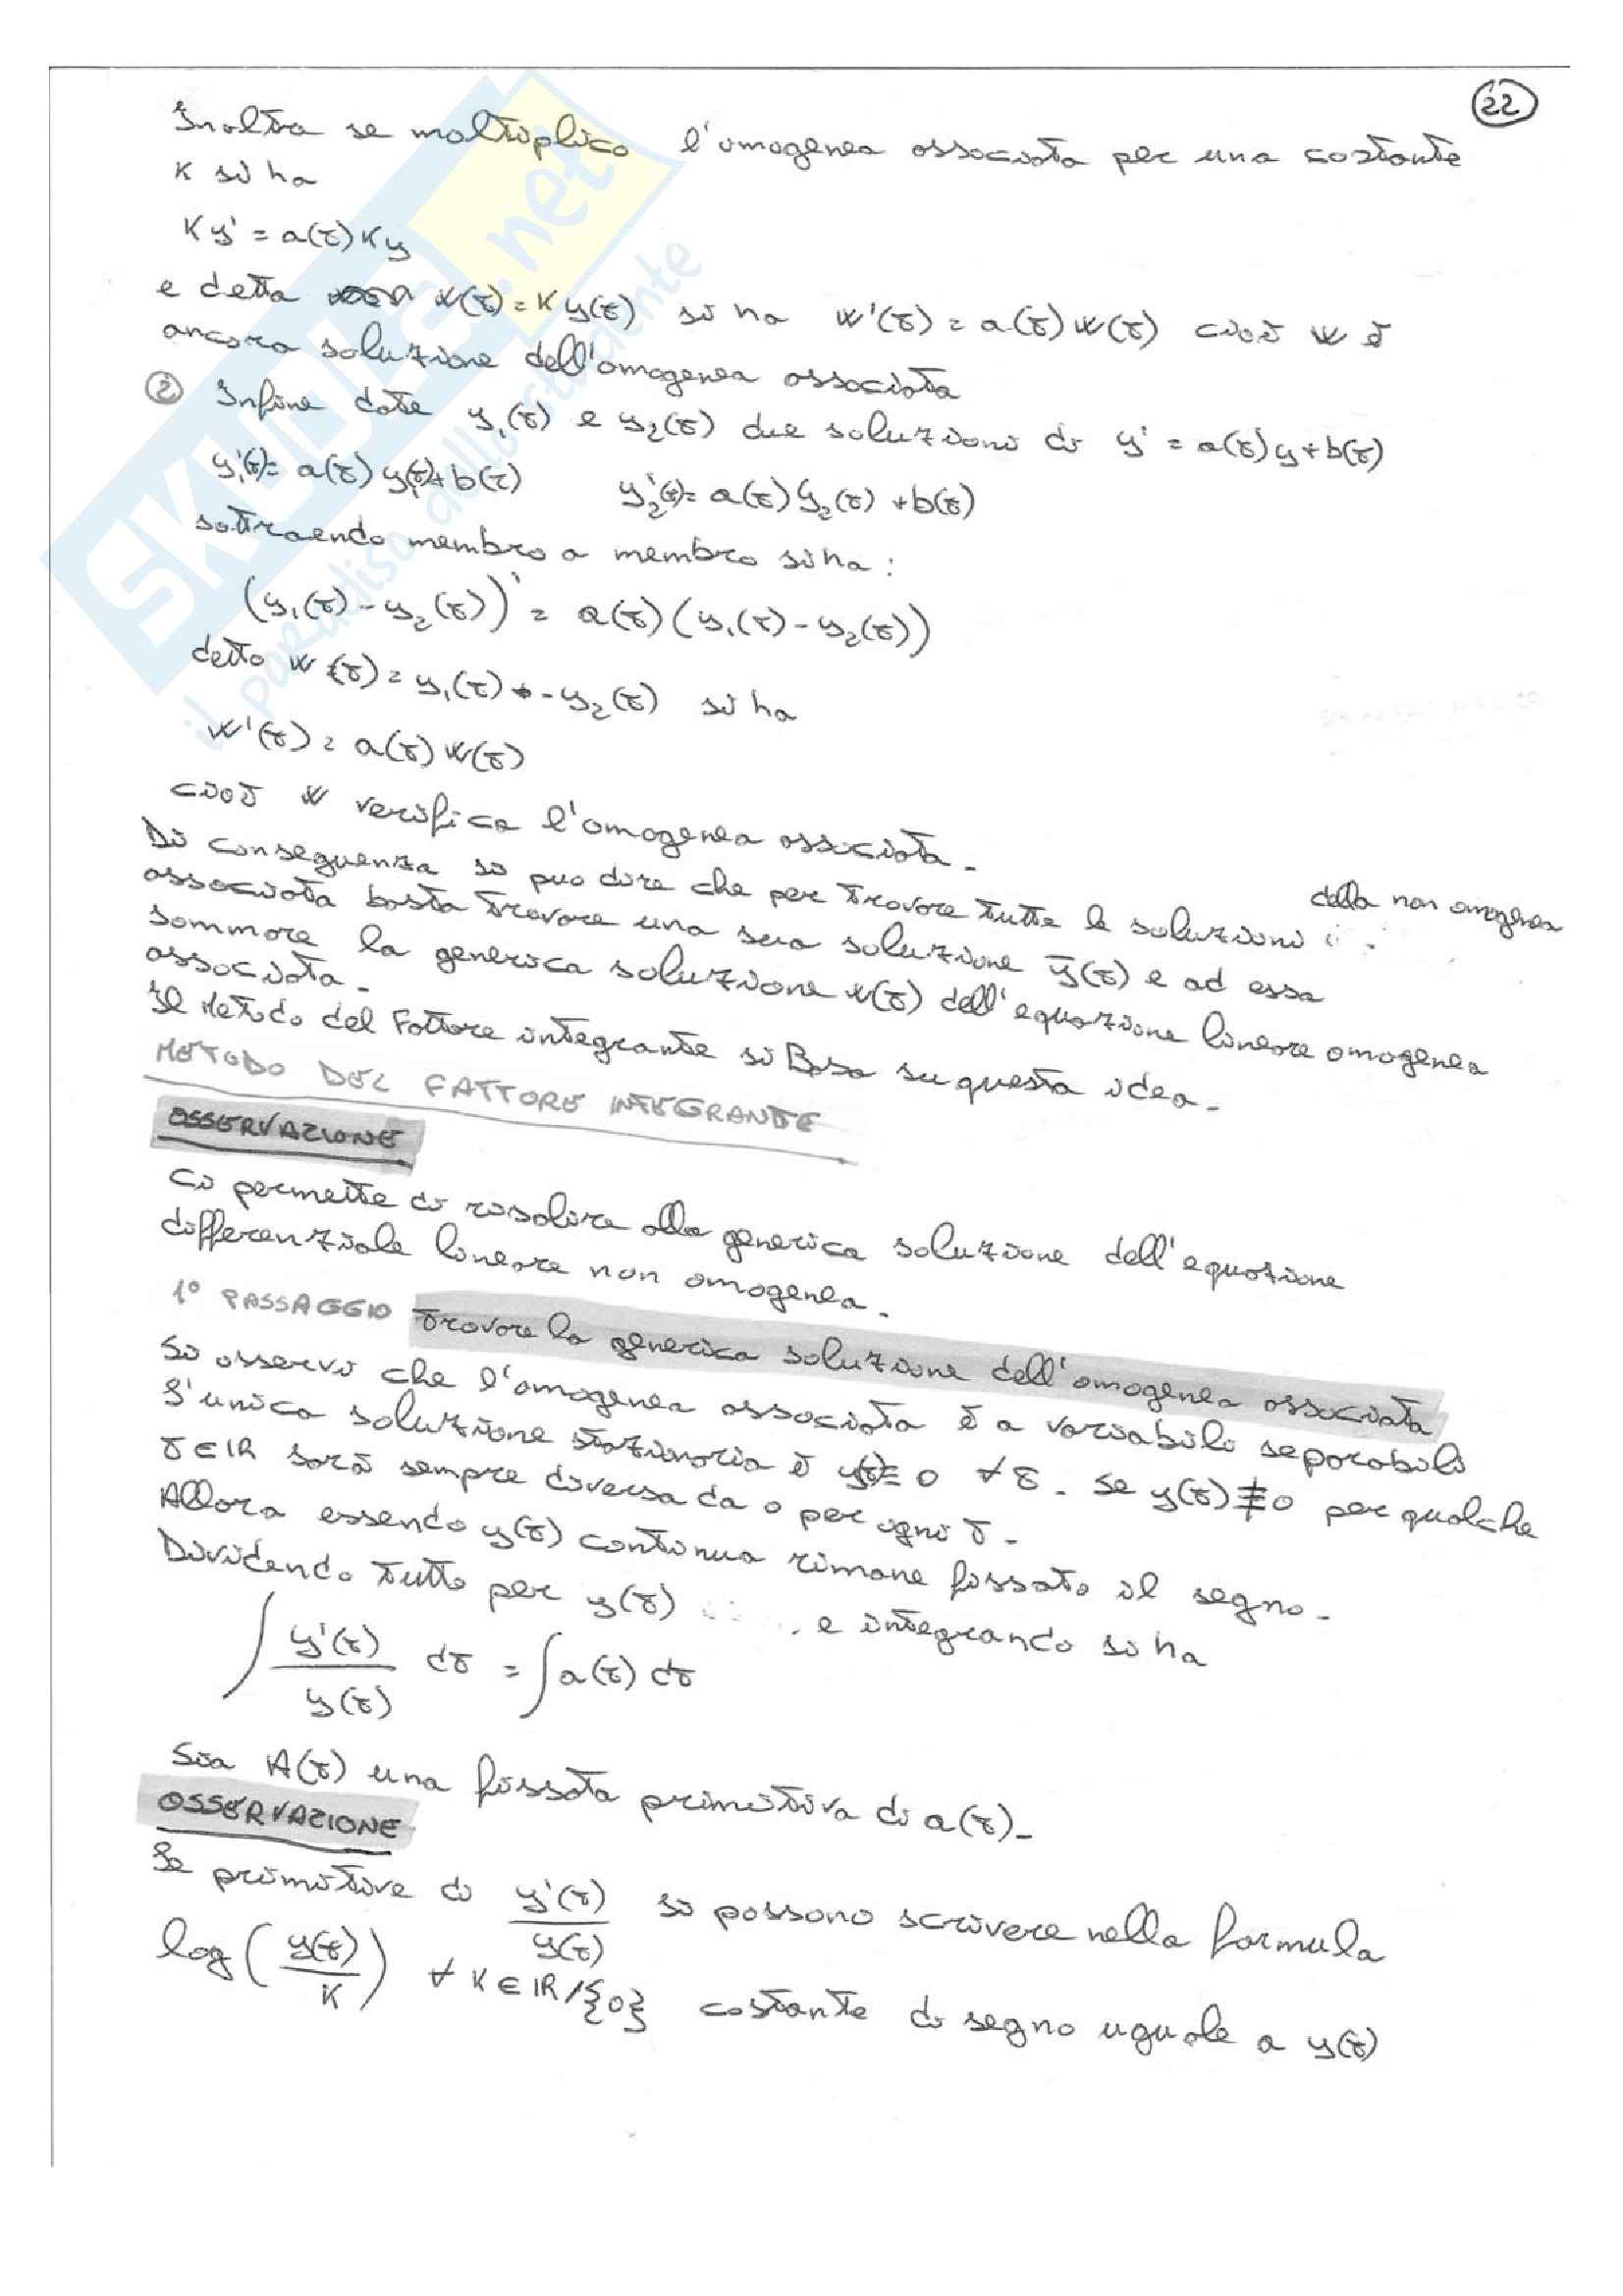 22
Inoltre se moltiplico l'omogenea associata per una costante
K si ha
Ky' = a(t)Ky
e detta w(t) = Ky(t) si ha w'(t) = a(t)w(t) cioè w è
ancora soluzione dell'omogenea associata
② Infine date y₁(t) e y₂(t) due soluzioni di y' = a(t)y+b(t)
y₁'(t) = a(t)y₁(t)+b(t) y₂'(t) = a(t)y₂(t)+b(t)
sottraendo membro a membro si ha:
(y₁(t)-y₂(t))' = a(t)(y₁(t)-y₂(t))
detto w(t) = y₁(t) - y₂(t) si ha
w'(t) = a(t)w(t)
cioè w verifica l'omogenea associata.
Di conseguenza si può dire che per trovare tutte le soluzioni della non omogenea
associata basta trovare una sua soluzione y̅(t) e ad essa
sommare la generica soluzione w(t) dell'equazione lineare omogenea
associata.
Il Metodo del Fattore integrante si Basa su questa idea.
METODO DEL FATTORE INTEGRANTE
OSSERVAZIONE
Ci permette di risalire alla generica soluzione dell'equazione
differenziale lineare non omogenea.
1° PASSAGGIO Trovare la generica soluzione dell'omogenea associata
Si osservi che l'omogenea associata è a variabili separabili
L'unica soluzione stazionaria è y(t)≡0 ∀t. Se y(t)≢0 per qualche
t∈ℝ sarà sempre diversa da 0 per ogni t.
Allora essendo y(t) continua rimane fissato il segno.
Dividendo tutto per y(t) e integrando si ha
∫ y'(t)/y(t) dt = ∫ a(t) dt
Sia A(t) una fissata primitiva di a(t).
OSSERVAZIONE
Le primitive di y'(t)/y(t) si possono scrivere nella formula
log(y(t)/K) ∀ K∈ℝ/{0} costante di segno uguale a y(t)
SKUOLA.net
il paradiso dello studente